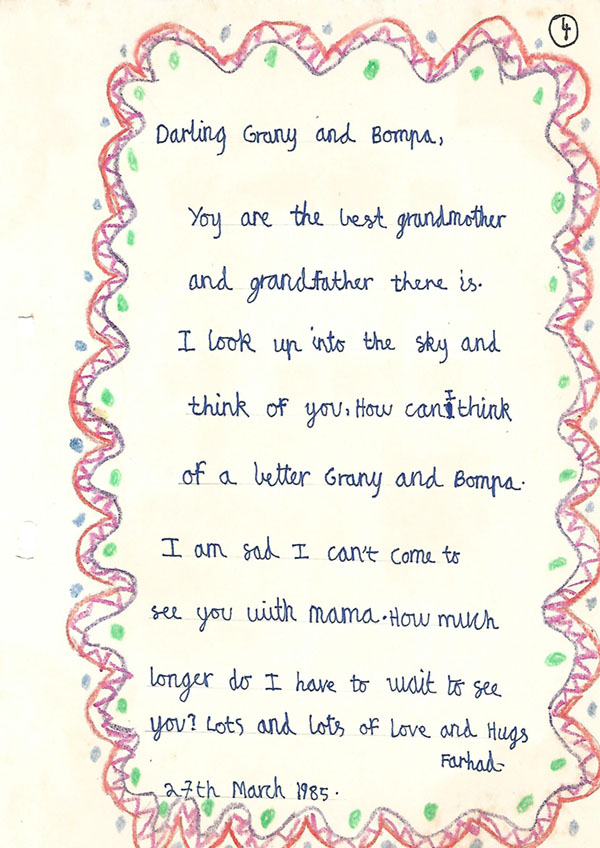 4
Darling Grany and Bompa,
Yoy are the best grandmother
and grandfather there is.
I look up into the sky and
think of you. How can I think
of a better Grany and Bompa.
I am sad I can't come to
see you with mama. How much
longer do I have to wait to see
you? Lots and lots of Love and Hugs
Farhad
27th March 1985.